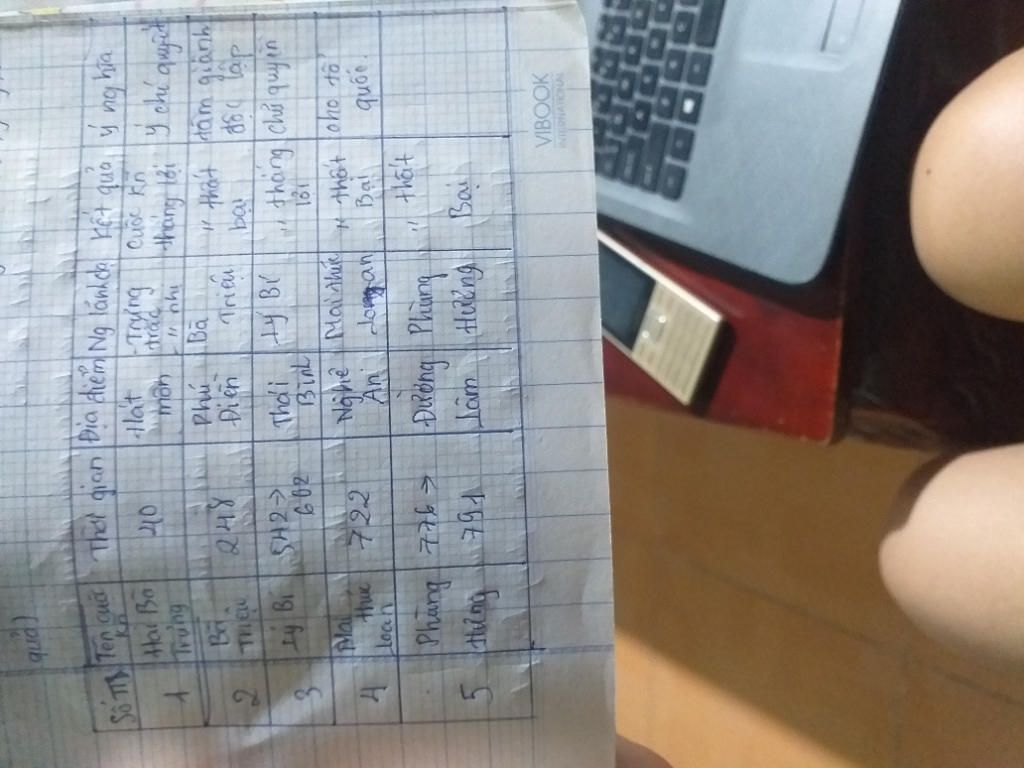 quả)
Số TT Tên cuộc KN Thời gian Địa điểm Ng lãnh đạo Kết quả ý nghĩa
1 Hai Bà Trưng 40 Hát môn - Trưng trắc - " nhị cuộc KN thắng lợi ý chí quyết
2 Bà Triệu 248 Phú Điền Bà Triệu " thất bại tâm giành độc lập
3 Lý Bí 542 → 602 Thái Bình Lý Bí " thắng lợi chủ quyền
4 Mai thúc loan 722 Nghệ An Mai thúc loan " thất Bại cho tổ quốc.
5 Phùng Hưng 776 → 791 Đường Lâm Phùng Hưng " thất Bại
VIBOOK
INTERNATIONAL